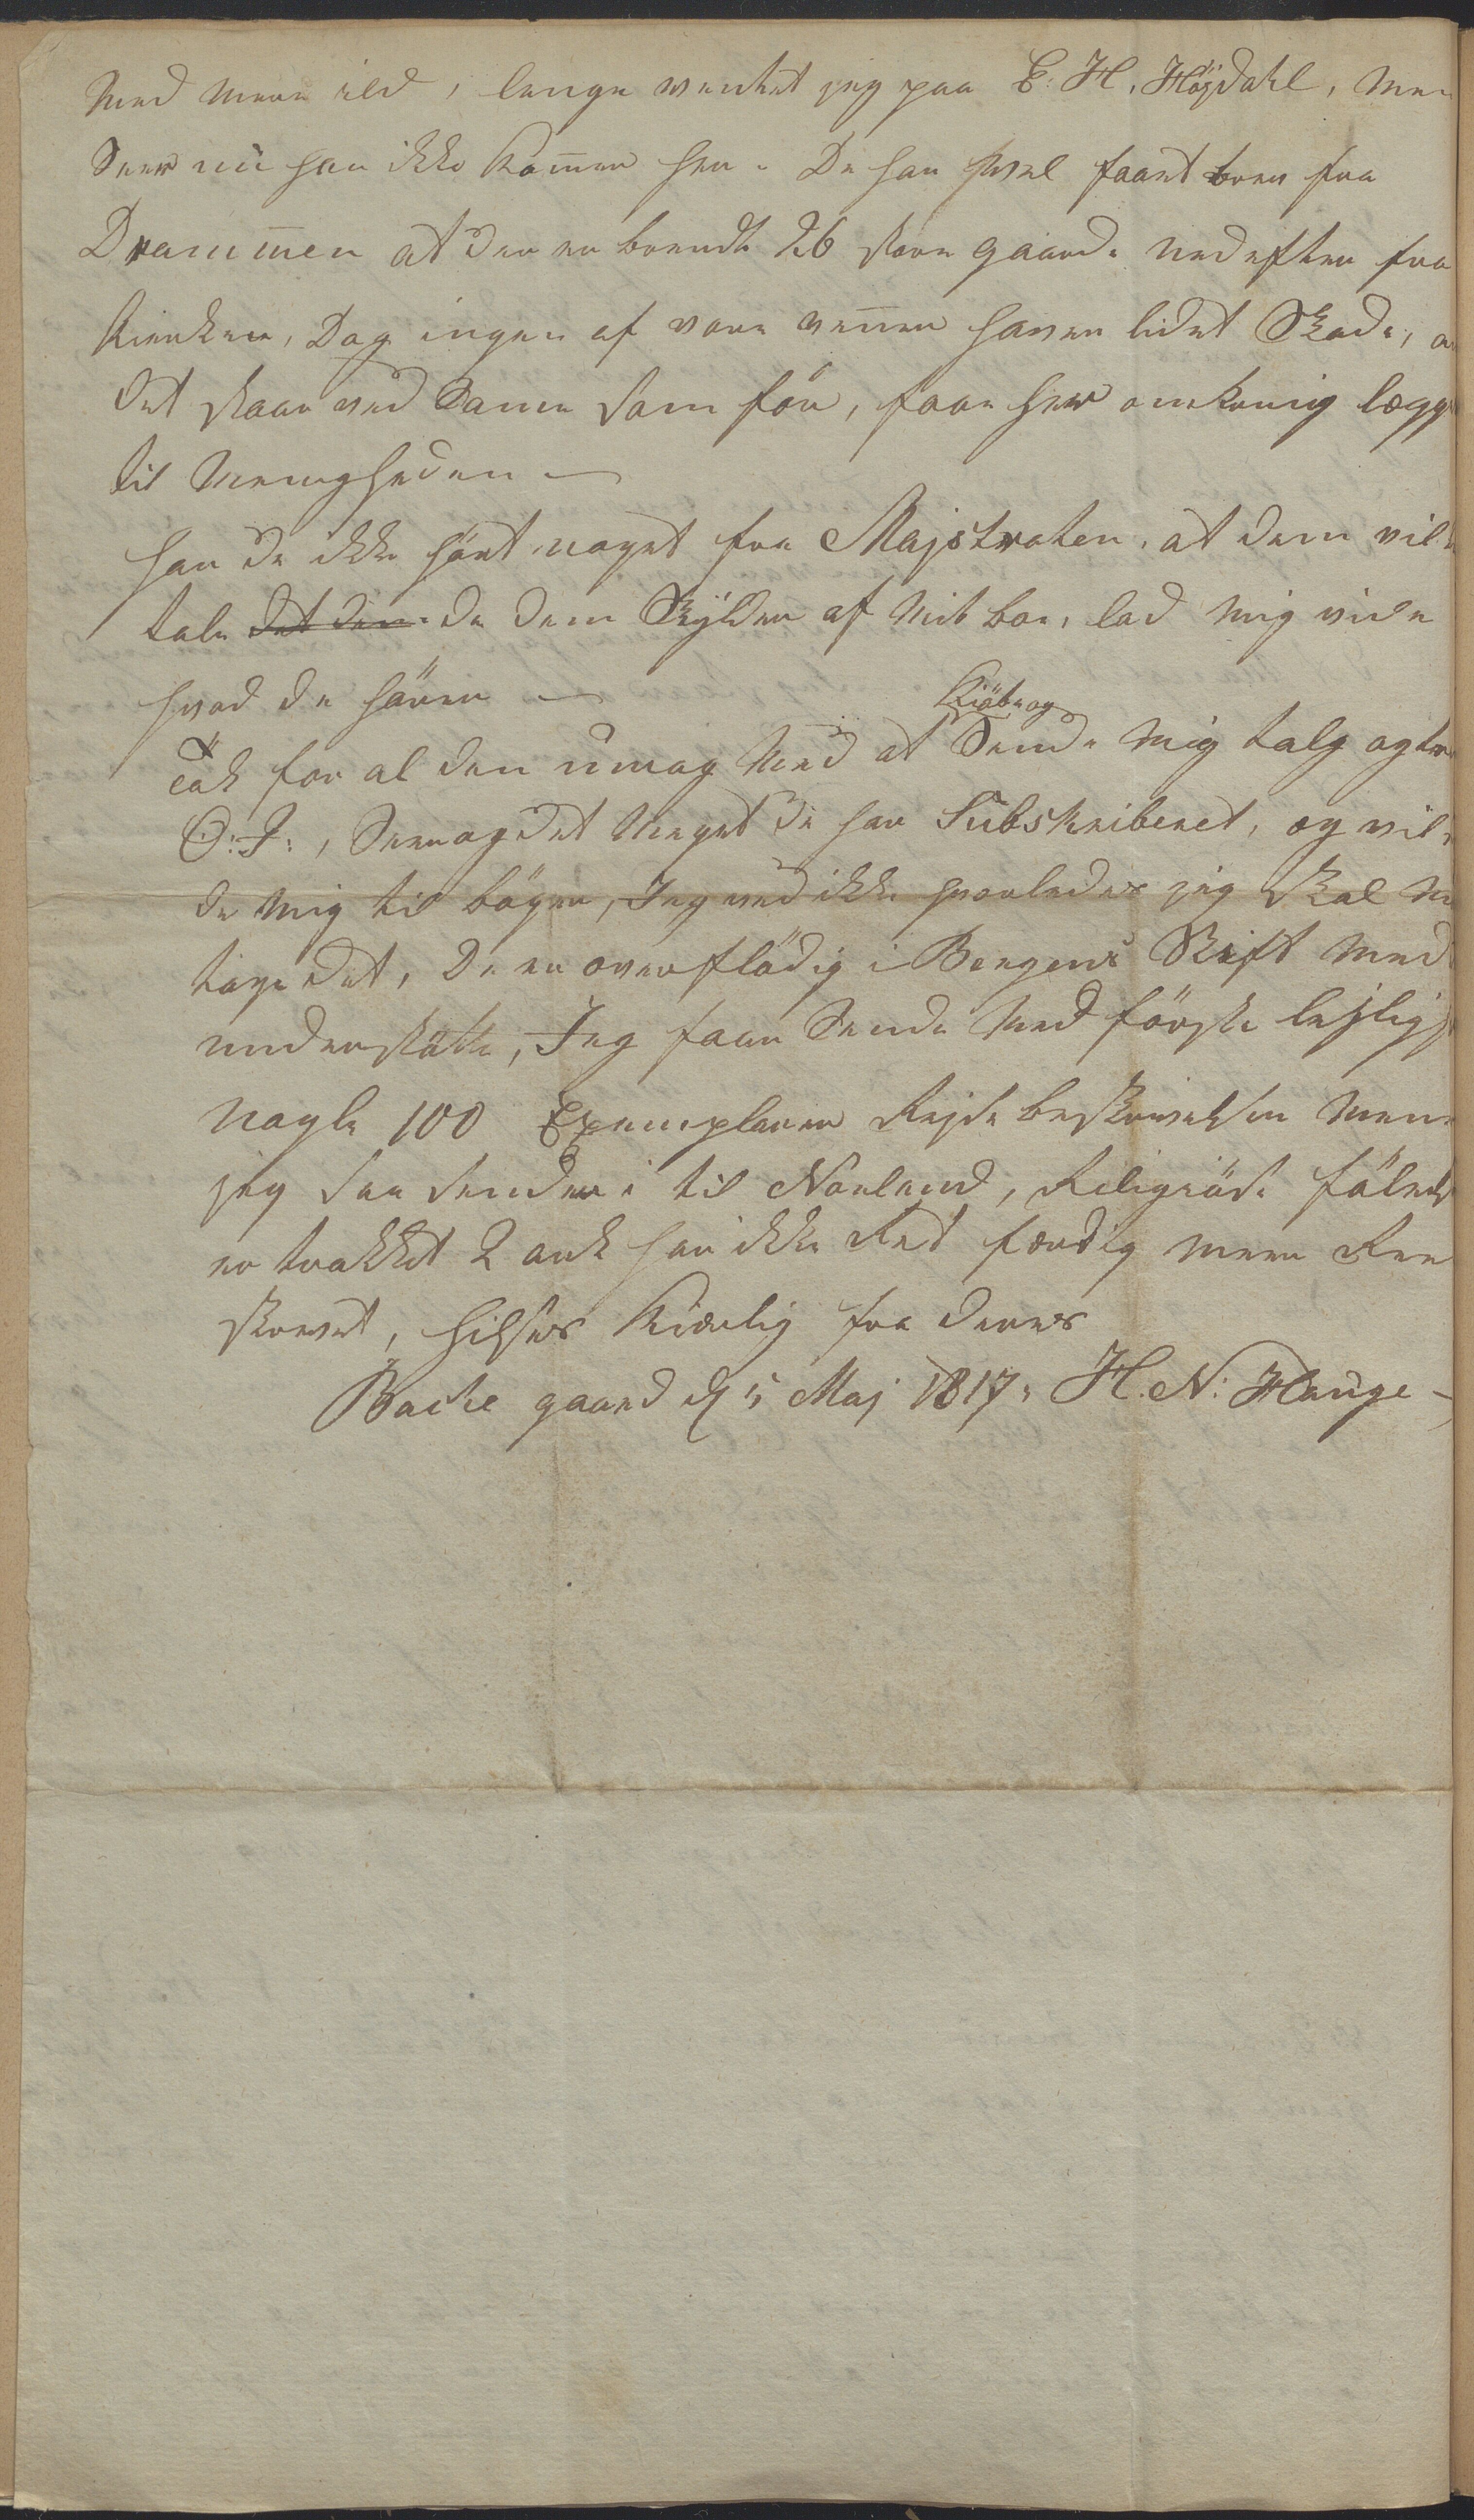 med mere ild, lenge ventet jeg paa E: H. Höjdahl, men
Seer nu han ikke kom̄er her. De har hvel faaet brev fra
Dram̄en at der er brendt 26 store gaarde nedefter fra
Kierken, Dog ingen af vore ven̄er haver lidet Skade,
det staar ved Same som för, faar her omkrenig lægge
til Menigheden —
har de ikke hört noget fra Majstraten, at dem vil
tale det den de dem Skylder af mit boe, lad mig vide
hvad de hörer —
Tak for al den umag med at Kiöbe og Sende mig talg og
O: J:, Seer og det meget De har Subskriberet, og vil
de mig til böger, Jeg ved ikke hvorledes jeg skal
tage det, De er overflödig i Bergens Stift med
understötte, Jeg faar Sende med förste lejlig
nogle 100 Exemplarer Rejse beskrivelser men
jeg saa sender i til Norland, Religiöse fölelser
er trokket 2 ark har ikke Ret færdig mere Ren
skrevet, hilses Kiærlig fra deres
Backe gaard d 5 Maj 1817. H. N: Hauge —